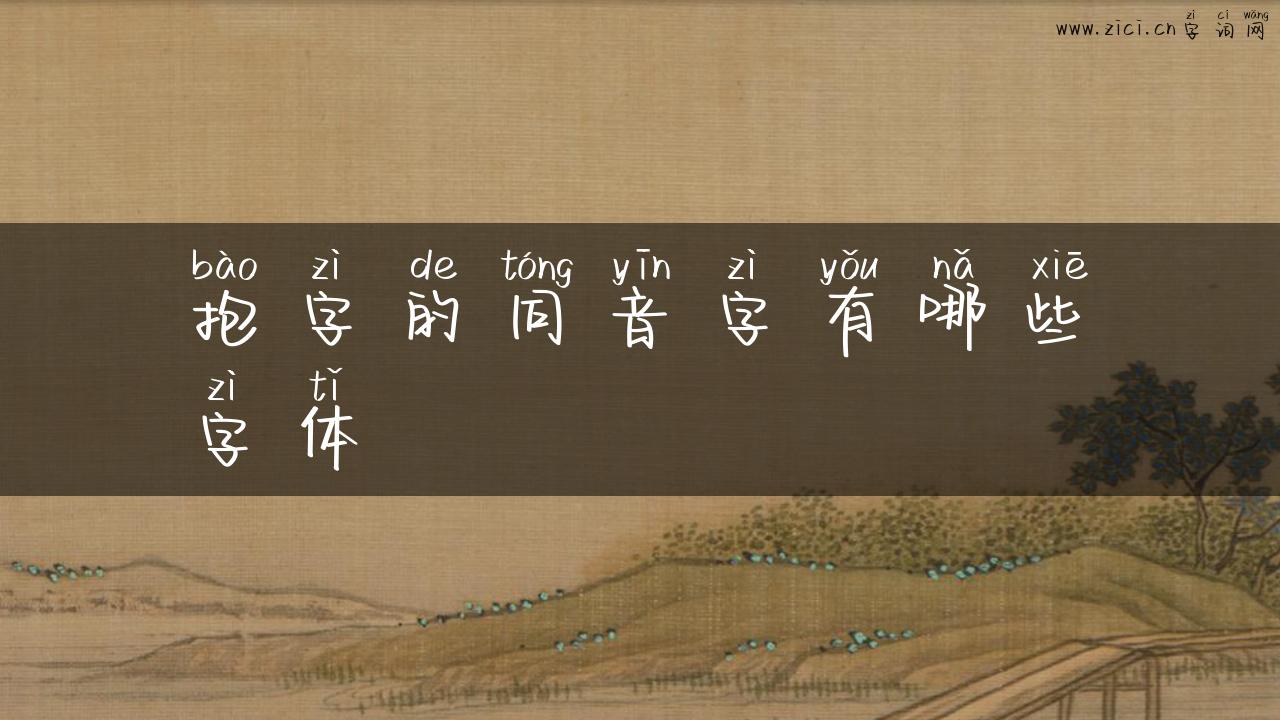 zì cí wǎng
www.zici.cn字词网
bào zì de tóng yīn zì yǒu nǎ xiē
抱字的同音字有哪些
zì tǐ
字体